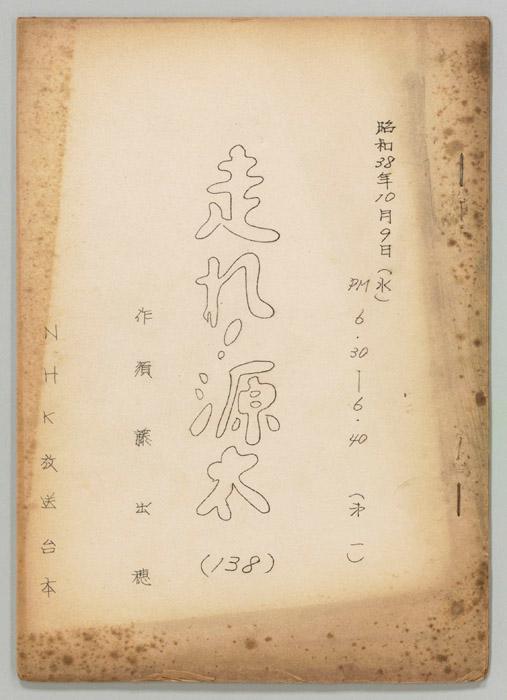 昭和38年10月9日(水)
PM 6.30—6.40 (オ一)
走れ!源太
(138)
作 須藤出穂
NHK放送台本